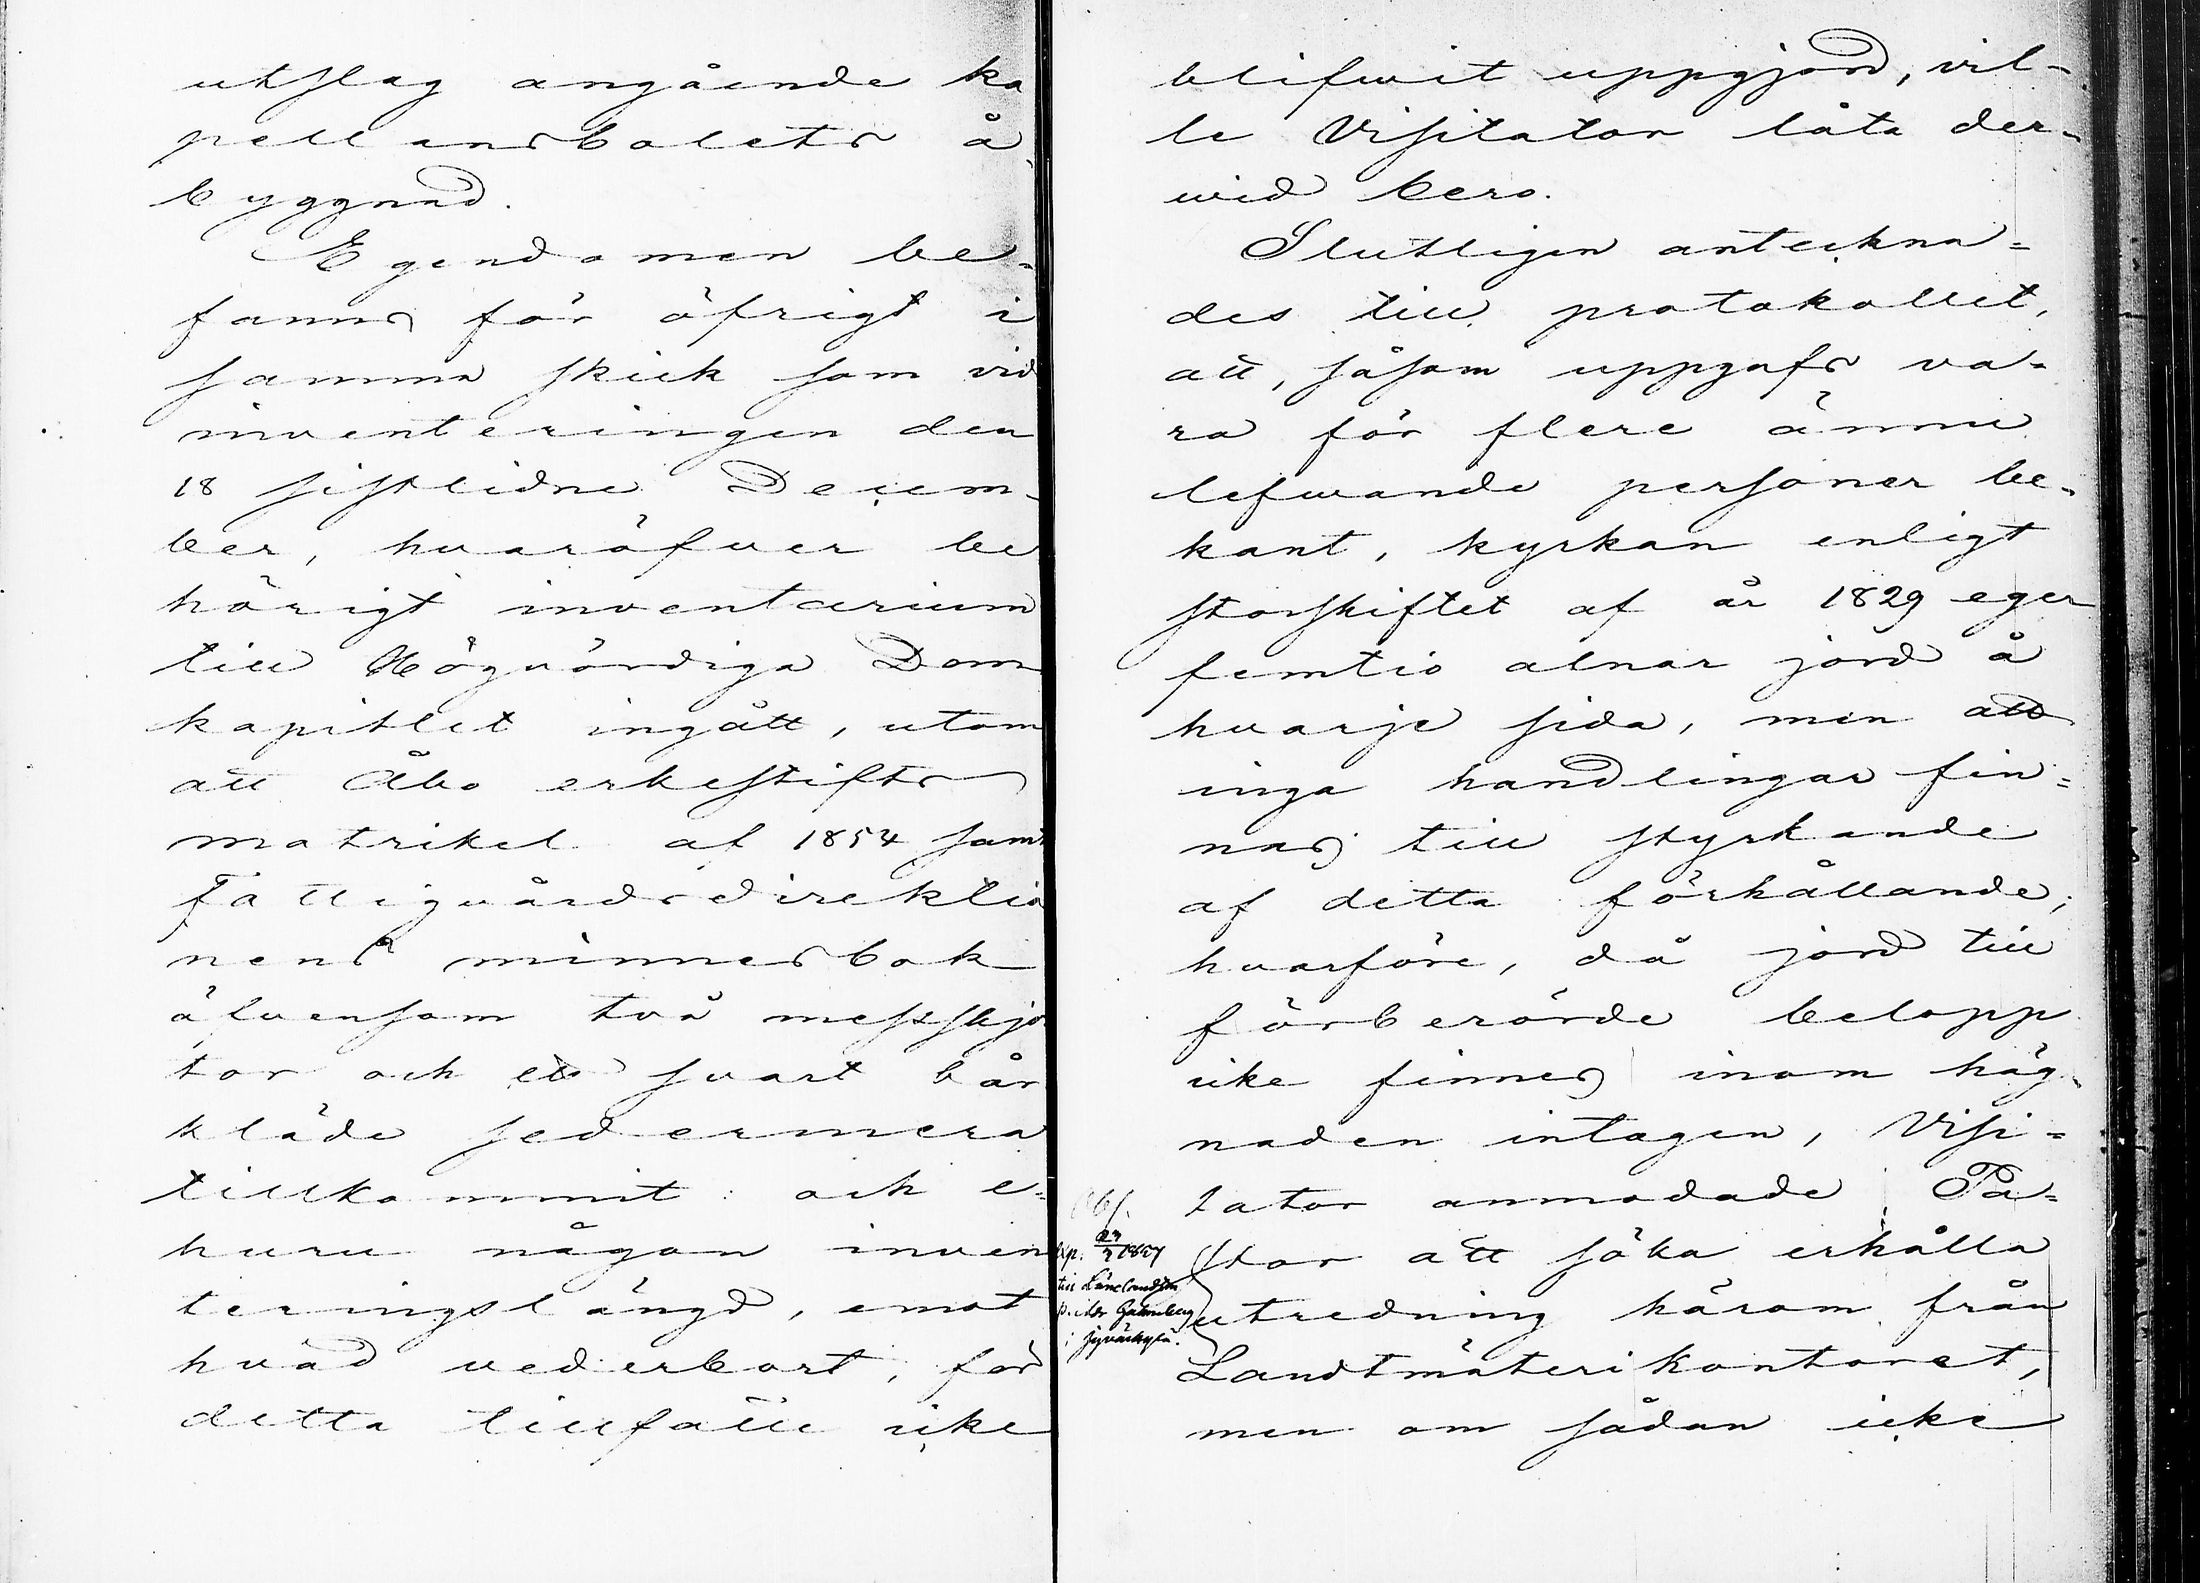 utslag angående ka
pellansbolets å-
byggnad.
Egendomen be-
fanns för öfrigt i
samma skick som vid
inventeringen den
18 sistlidne Decem-
ber, hvaröfver be
hörigt inventarium
till Högvördiga Dom
kapitlet ingått, utom
att Åbo erkestifts
matrikel af 1854 samt
Fattigvårdsdirektio
nens minnesbok
äfvensom två messskjor
tor och ett svart bår
kläde sedermera
tillkommit: och e-
huru någon inven
teringslängd, emot
hvad vederbort, för
detta tillfälle icke
blifwit uppgjord, vil-
le Visitator låta der-
wid bero.
Slutligen anteckna-
des till protokollet,
att, såsom uppgafs va-
ra för flere ännu
lefwande personer be-
kant, kyrkan enligt
storskiftet af år 1829 eger
femtio alnar jord å
hvarje sida, men att
inga handlingar fin-
nas till styrkande
af detta förhållande;
hvarföre, då jord till
förberörde belopp
icke finnes inom häg-
naden intagen, Visi-
tator anmodade Pa-
stor att söka erhålla
utredning härom från
Landtmäterikontoret,
men om sådan icke
Exp. 23/3 1857
till Länelandtm
i Jyväskylä.